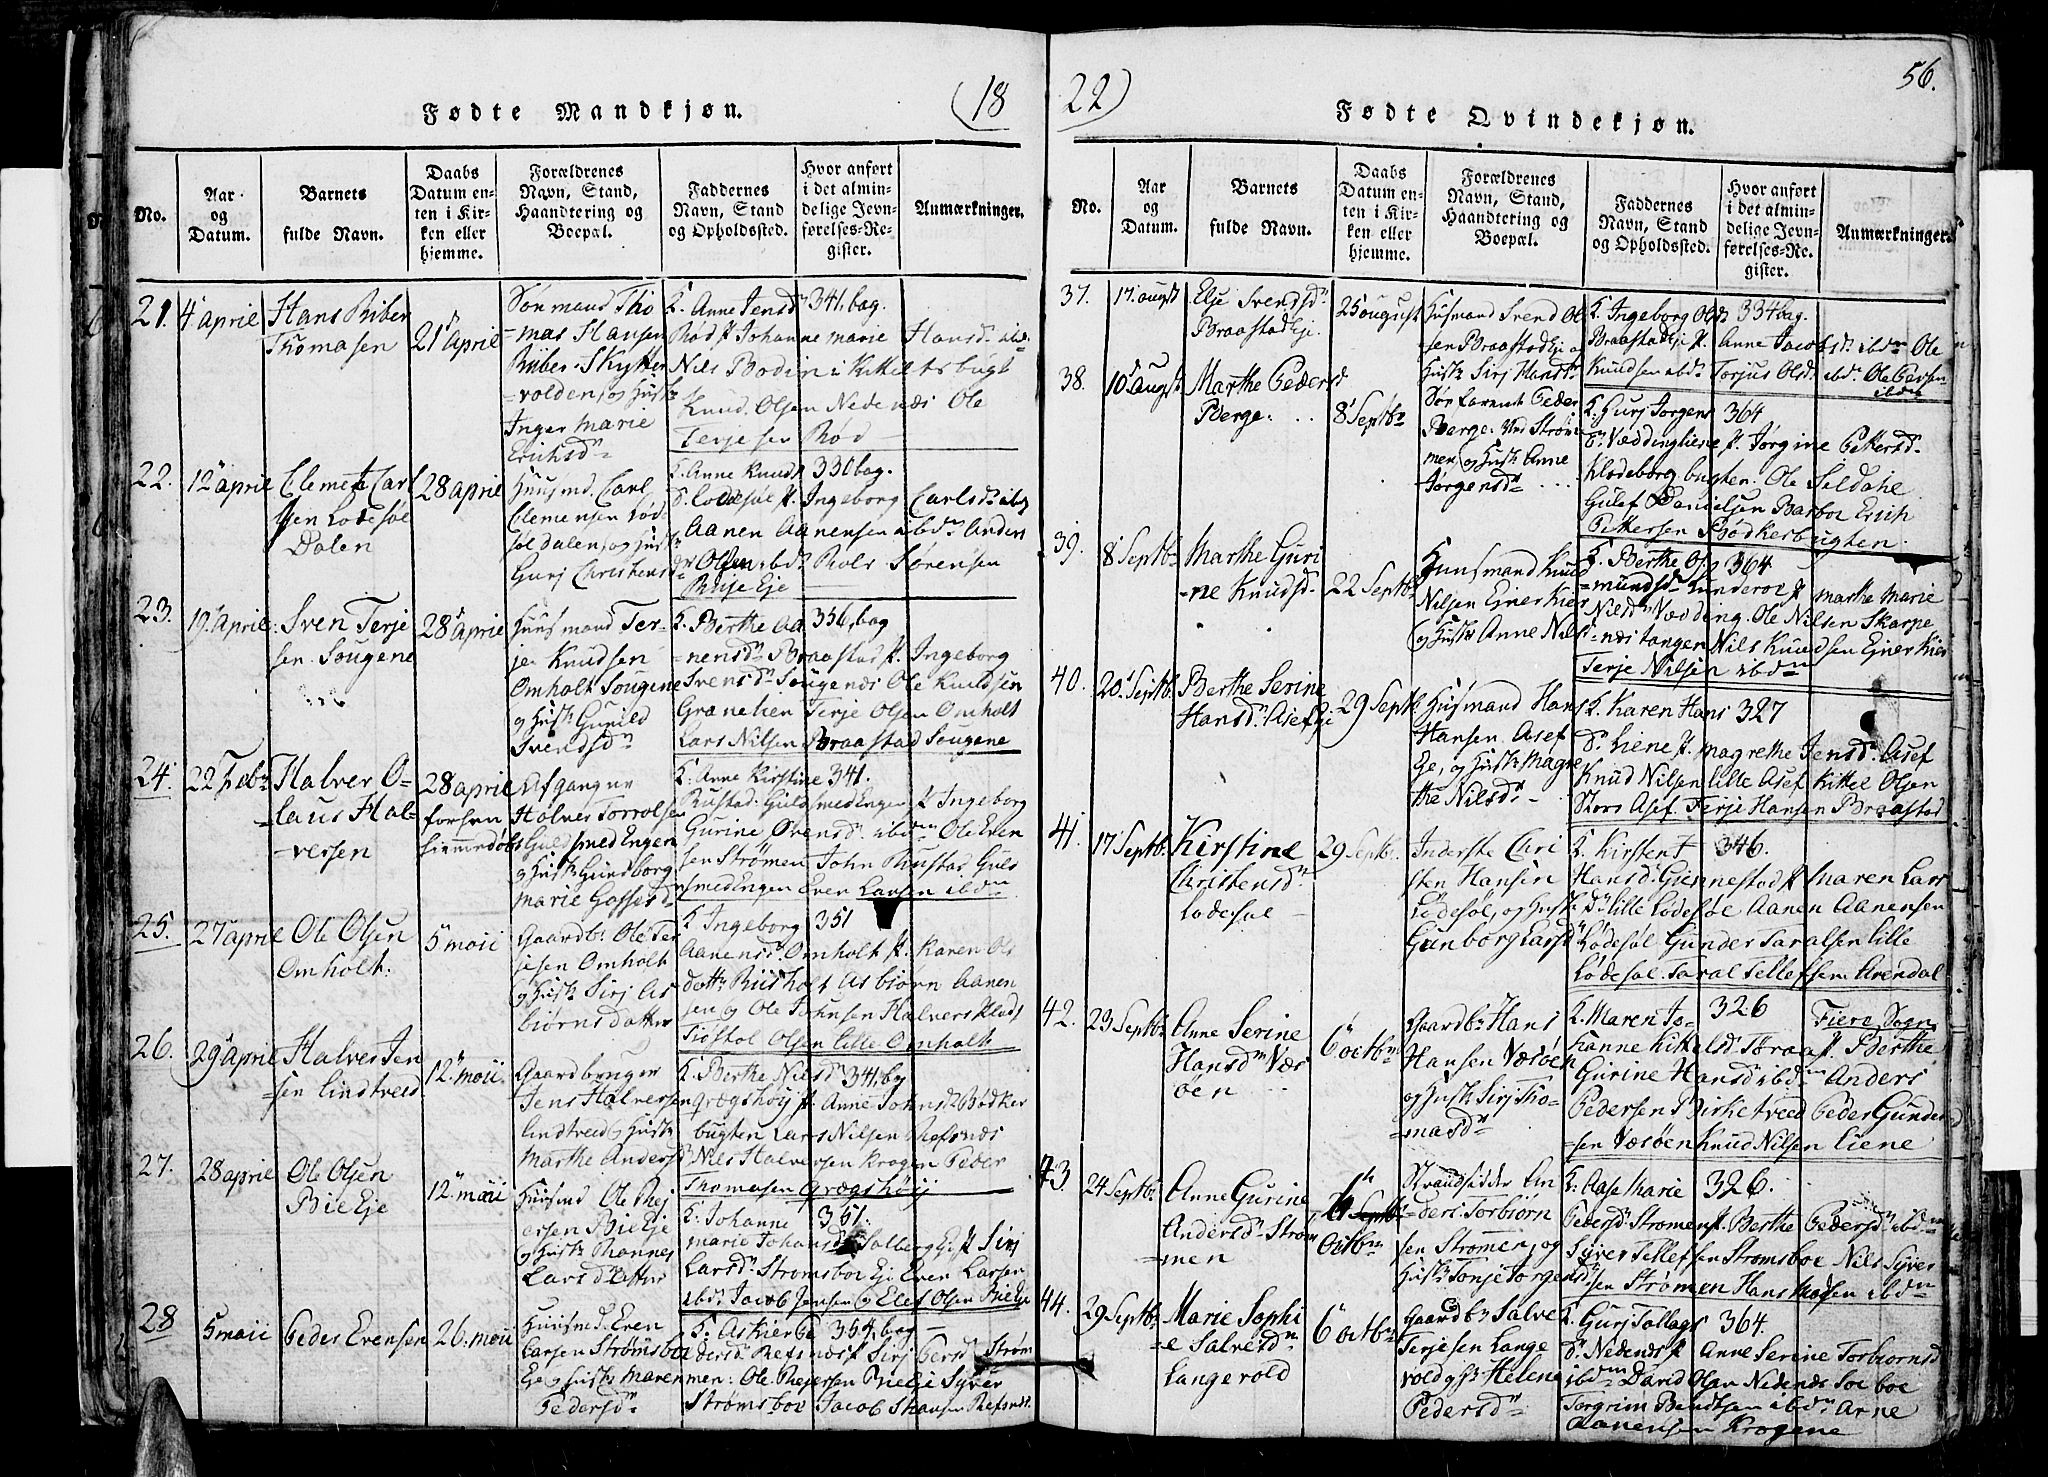 (18
Fødte Mandkjøn.
No.
Aar og Datum.
Barnets fulde Navn.
Daabs Datum enten i Kirken eller hjemme.
Forældrenes Navn, Stand, Haandtering og Boepæl.
Faddernes Navn, Stand og Opholdssted.
Hvor anført i det almindelige Jevnførelses-Register.
Anmærkninger.
21. 4 aprie
Hans Riber
Thomasen
21 aprie
Sørmand Tho
-mas Hansen
Riber Skytter
-volden, og Hust
Inger Marie
Erichsdn
K. Anne Jensdr 341. bag.
Rød f. Johanne marie Hansd. ibdn
Nils Bodin i Kittelsbugt
Knud Olsen Nedenæs Ole
Terjesen Rød
22. 12 aprie
Clemet Carl
sen Lodesøl
Dalen
28 aprie
Huusmd. Carl
Clemensen Lød
søl dalen, og Hust
Gurj Christensd
K. Anne Knuds 330 bag.
d. Lodesøl f. Ingeborg Carlsdn ibd
Aanen Aanensen ibdn Anders
Olsen ibdn Rolr Sørensen
Bøije Eje
23. 19 aprie
Sven Terje
sen Sougene
28 aprie
Huusmand Ter-
je Knudsen
Omholt Sougene
og Hust Gunild
Svendsdn
K. Berthe Aa 336, bag
-nensdn Braastad f. Ingeborg
Svensdn Sougenæs Ole Knudsen
Granelien Terje Olsen Omholt
Lars Nilsen Braastad Sougene
24. 22 Febr
Halver O-
laus Hal-
versen
28 aprie
forhen
hiemmedøbt
Afgangne
Halver Torrolsen
Guldsmedengen
og Hust Gundborg
marie Gossesd
K. Anne Kirstine 341.
Rustad Guldsmedengen f. Ingeborg
Gurine Ovensd ibdm Ole Even
sen Strømen John Rustad Guls
smedengen Even Larsen ibdm
25. 27 aprie
Ole Olsen
Omholt.
5 maii
Gaardbr Ole Ter
jesen Omholt
og Hust Sirj As
biørnsdatter
K. Ingeborg 351
Aanensd. Omholt f. Karen Ols
datter Riisholt Asbiørn Aanen
sen og Ole Johnsen Halvers Plads
Tiøstol Olsen lille Omholt
26. 29 aprie
Halver Jen
sen Lindtveed
12 maii
Gaardbruger
Jens Halversen
Lindtveed og Hust
Marthe Andersd
K. Berthe Nilsd 341. bg
Grægshøij f. Anne Johnsd Bødker
bugten Lars Nilsen Refsnæs
Nils Halversen Krogen Peder
Thomasen Grægshøij
27. 28 aprie
Ole Olsen
Bie Eje
12 maii
Huusmd Ole Rej
ersen Bie Eje
og Hust Rannej
Larsdatter
K. Johanne 351.
marie Johansd Solberg Eje f. Sirj
Larsd Strømsboe Eje Even Larsen
ibdn Jacob Jensen og Eles Olsen Bie Eje
28 5 maii
Peder Evensen
26. maii
Huusmd. Even
Larsen Strømsboe
Eje og Hust Maren
Pedersdn
K. Askier Pe 354, bag
dersd. Refsnæs f. Sirj Persd. Strøm
men: Ole Rejersen Bie Eje Syver
Strømsboe Jacob Hansen Refsnæs
22) 56.
Fødte Qvindekjøn.
No.
Aar og Datum.
Barnets fulde Navn.
Daabs Datum enten i Kirken eller hjemme.
Forældrenes Navn, Stand, Haandtering og Boepæl.
Faddernes Navn, Stand og Opholdssted.
Hvor anført i det almindelige Jevnførelses-Register.
Anmærkninger.
37. 17. augst
Else Svendsdn
Braastad Eje.
25 august
Husmand Svend Ol
sen Braastad Eje og
Hust Sirj Hansdn
K. Ingeborg Olsd 334 bag.
Braastad Eje f. Anne Jacobsdn ibdm Ole
Knudsen ibdn Torjus Olsd. ibdn Ole Persen
ibdm
38. 10 Augst
Marthe Pedersd
Berge.
8 Septbr
Sørfarent Peder
Barge. ved Strøm
men, og Hust Anne
Jørgensdn
K. Gurj Jorgens 364
Dn Væddinglien f. Jørgine Pettersdn
Klodeborg bugten. Ole Seldahl
Gulef Danielsen Barboe Erich
Pettersen Bødkerbugten.
39. 8 Septbr
Marthe Guri
-ne Knudsd
22 Septbr
Huusmand Knud
Nilsen Ejnerkier
og Hust Anne Nils
K. Berthe Og 364
-mundsd Lunderoe f. marthe marie
Nilsdn Vædding. Ole Nilsen Skarpe
næstangen Nils Knudsen Ejnerkier
Terje Nilsen ibdm
40. 20 Septbr
Berthe Serine
Hansdn Asef Eje
29 Septbr
Husmand Hans
Hansen Asef
Eje, og Hust Magre
the Nilsdn
K. Karen Hans 327
dn Liene f. magrethe Jensd. Asef
Knud Nilsen lille Asef Kittel Olsen
Store Asef Terje Hansen Braastad
41. 17 Septbr
Kirstine
Christensdn
Lodesøl
29 Septbr.
Inderste Chri
sten Hansen
Lødesøl, og Hust
Gunborg Larsd
K. Kirsten 346.
Hansd. Giennestad f. Maren Lars
Dn lille Lødesøe Aanen Aanensen
Lødesøl Gunder Taralsen lille
Lødesøl. Taral Tellefsen Arendal
42. 23 Septbr
Anne Serine
Hansdn Væs
øen
6 octbr
Gaardbr Hans
Hansen Væsøen
og Hust Sirj Tho-
masdn
K. Maren Jo- 326 Fiere Sogn
hanne Kittelsd Toraas f. Berthe
Gurine Hansd ibdm Anders
Pedersen Birketveed Peder Gunder
sen Væsøen Knud Nilsen Liene
43. 24 Septbr
Anne Gurine
Andersdn Strøm
-men
6 Octbr
Strandsidder An
-ders Torbiørn
sen Strømen, og
Hust Tonje Jorgensd
K. Aase Marie 326.
Pedersd. Strømen f. Berthe Pedersdn ibdm
Syver Tellefsen Stromsboe Nils Syver
sen Strømen Hans ibdn
44. 29 Septbr
Marie Sophi
e Salvesdn
Langevold
6 octbr
Gaardbr Salve
Terjesen Lange
vold og Hst Helene
Pedersdn
K. Gurj Tallags 364.
D. Nedenæs f. Anne Serine Torbiørnsd
ibdm David Olsen Nedenæs Soeboe
Tergrim Bendtsen ibdm Arne
Aanensen Krogene